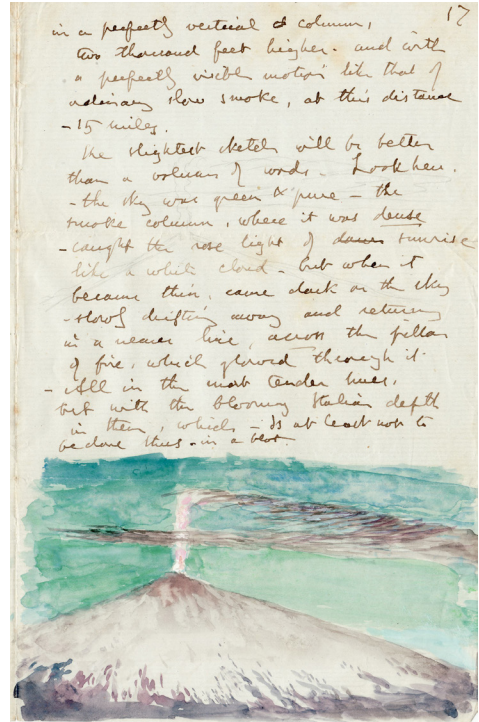 17
in a perfectly vertical column,
two thousand feet higher. and with
a perfectly visible motion like that of
ordinary slow smoke, at this distance
- 15 miles.
The slightest sketch will be better
than a volume of words. Look here.
- the sky was green & pure - the
smoke column, where it was dense
- caught the rose light of dawn sunrise
like a white cloud - but when it
became thin, came dark on the sky
- slowly drifting away and returning
in a nearer line, across the pillar
of fire, which glowed through it.
- All in the most tender hues,
but with the bloomy Italian depth
in them, which - is at least not to
be done thus - in a blot